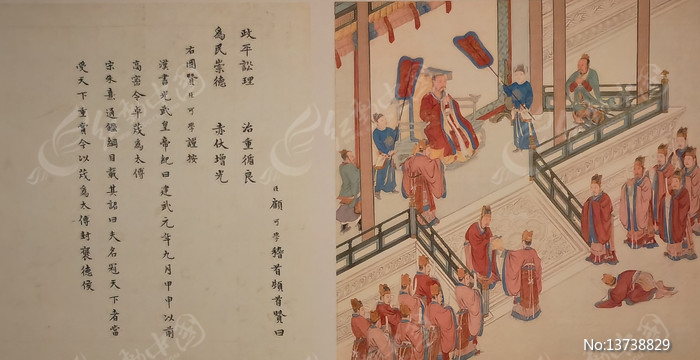 臣顧可學稽首頓首贊曰
政平訟理 治重循良
為民崇德 赤伏增光
右圖贊臣可學謹按
漢書光武皇帝紀曰建武元年九月甲申以前
高密令卓茂為太傅
宋朱熹通鑑綱目載其詔曰夫名冠天下者當
受天下重賞今以茂為太傅封褒德侯
No:13738829